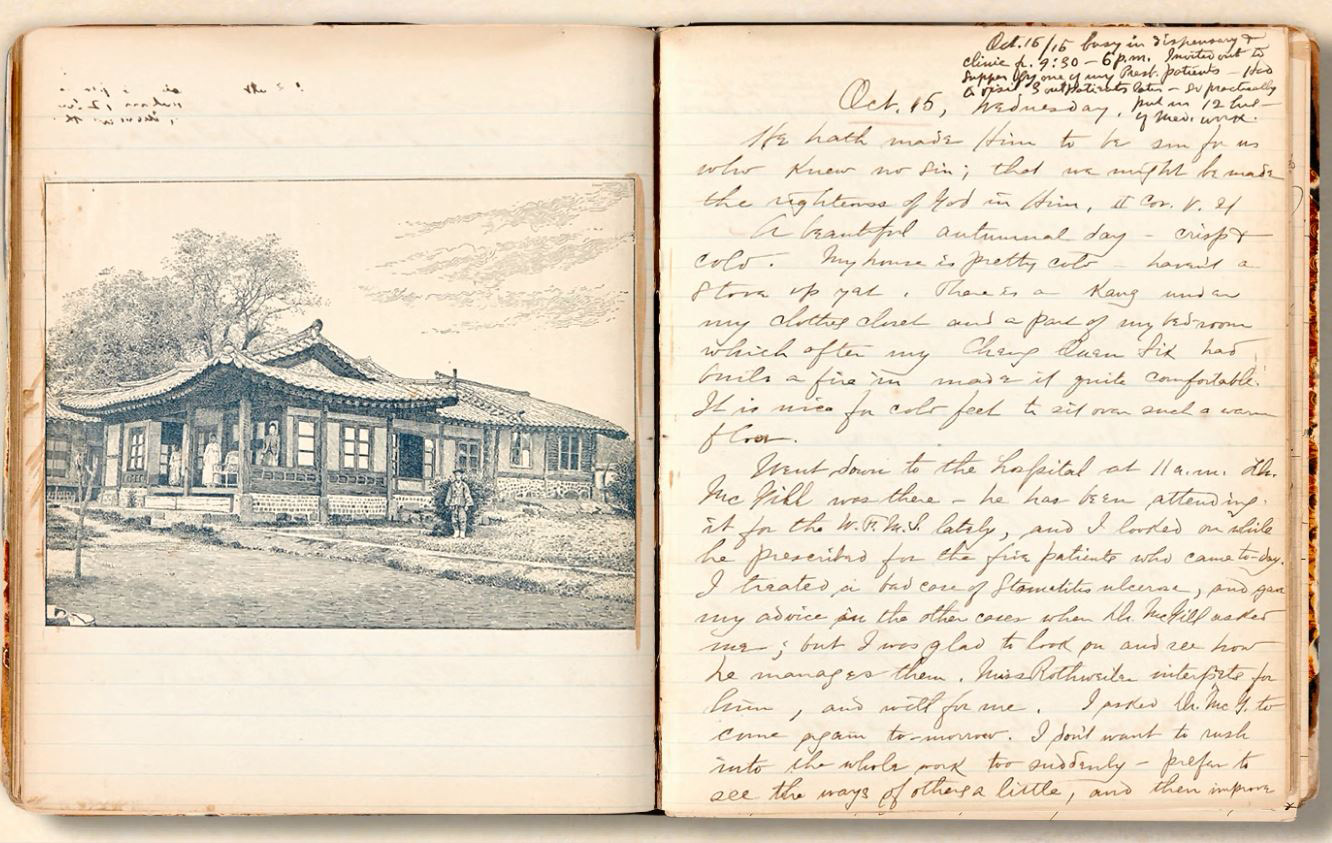 Oct. 15/15 busy in dispensary &
clinic fr. 9:30 – 6 p.m. Invited out to
supper by one of my Presb. patients – Had
a visit 3 outpatients later – So practically
put in 12 hrs –
of Med. work.
Oct. 15, Wednesday.
He hath made Him to be sin for us
who knew no sin; that we might be made
the righteousness of God in Him, II Cor. V. 21
A beautiful autumnal day – crisp &
cold. My house is pretty cold – haven't a
stove up yet. There is a Kang under
my clothes closet and a part of my bedroom
which after my Cheng Quan Sik had
built a fire in made it quite comfortable.
It is nice for cold feet to sit over such a warm
floor.
Went down to the hospital at 11 a.m. Dr.
McGill was there – he has been attending
it for the W.F.M.S. lately, and I looked on while
he prescribed for the five patients who came to-day.
I treated a bad case of Stomatitis ulcerosa, and gave
my advice in the other cases when Dr. McGill asked
me; but I was glad to look on and see how
he manages them. Miss Rothweiler interprets for
him, and will for me. I asked Dr. McG. to
come again to-morrow. I don't want to rush
into the whole work too suddenly – prefer to
see the ways of others a little, and then improve